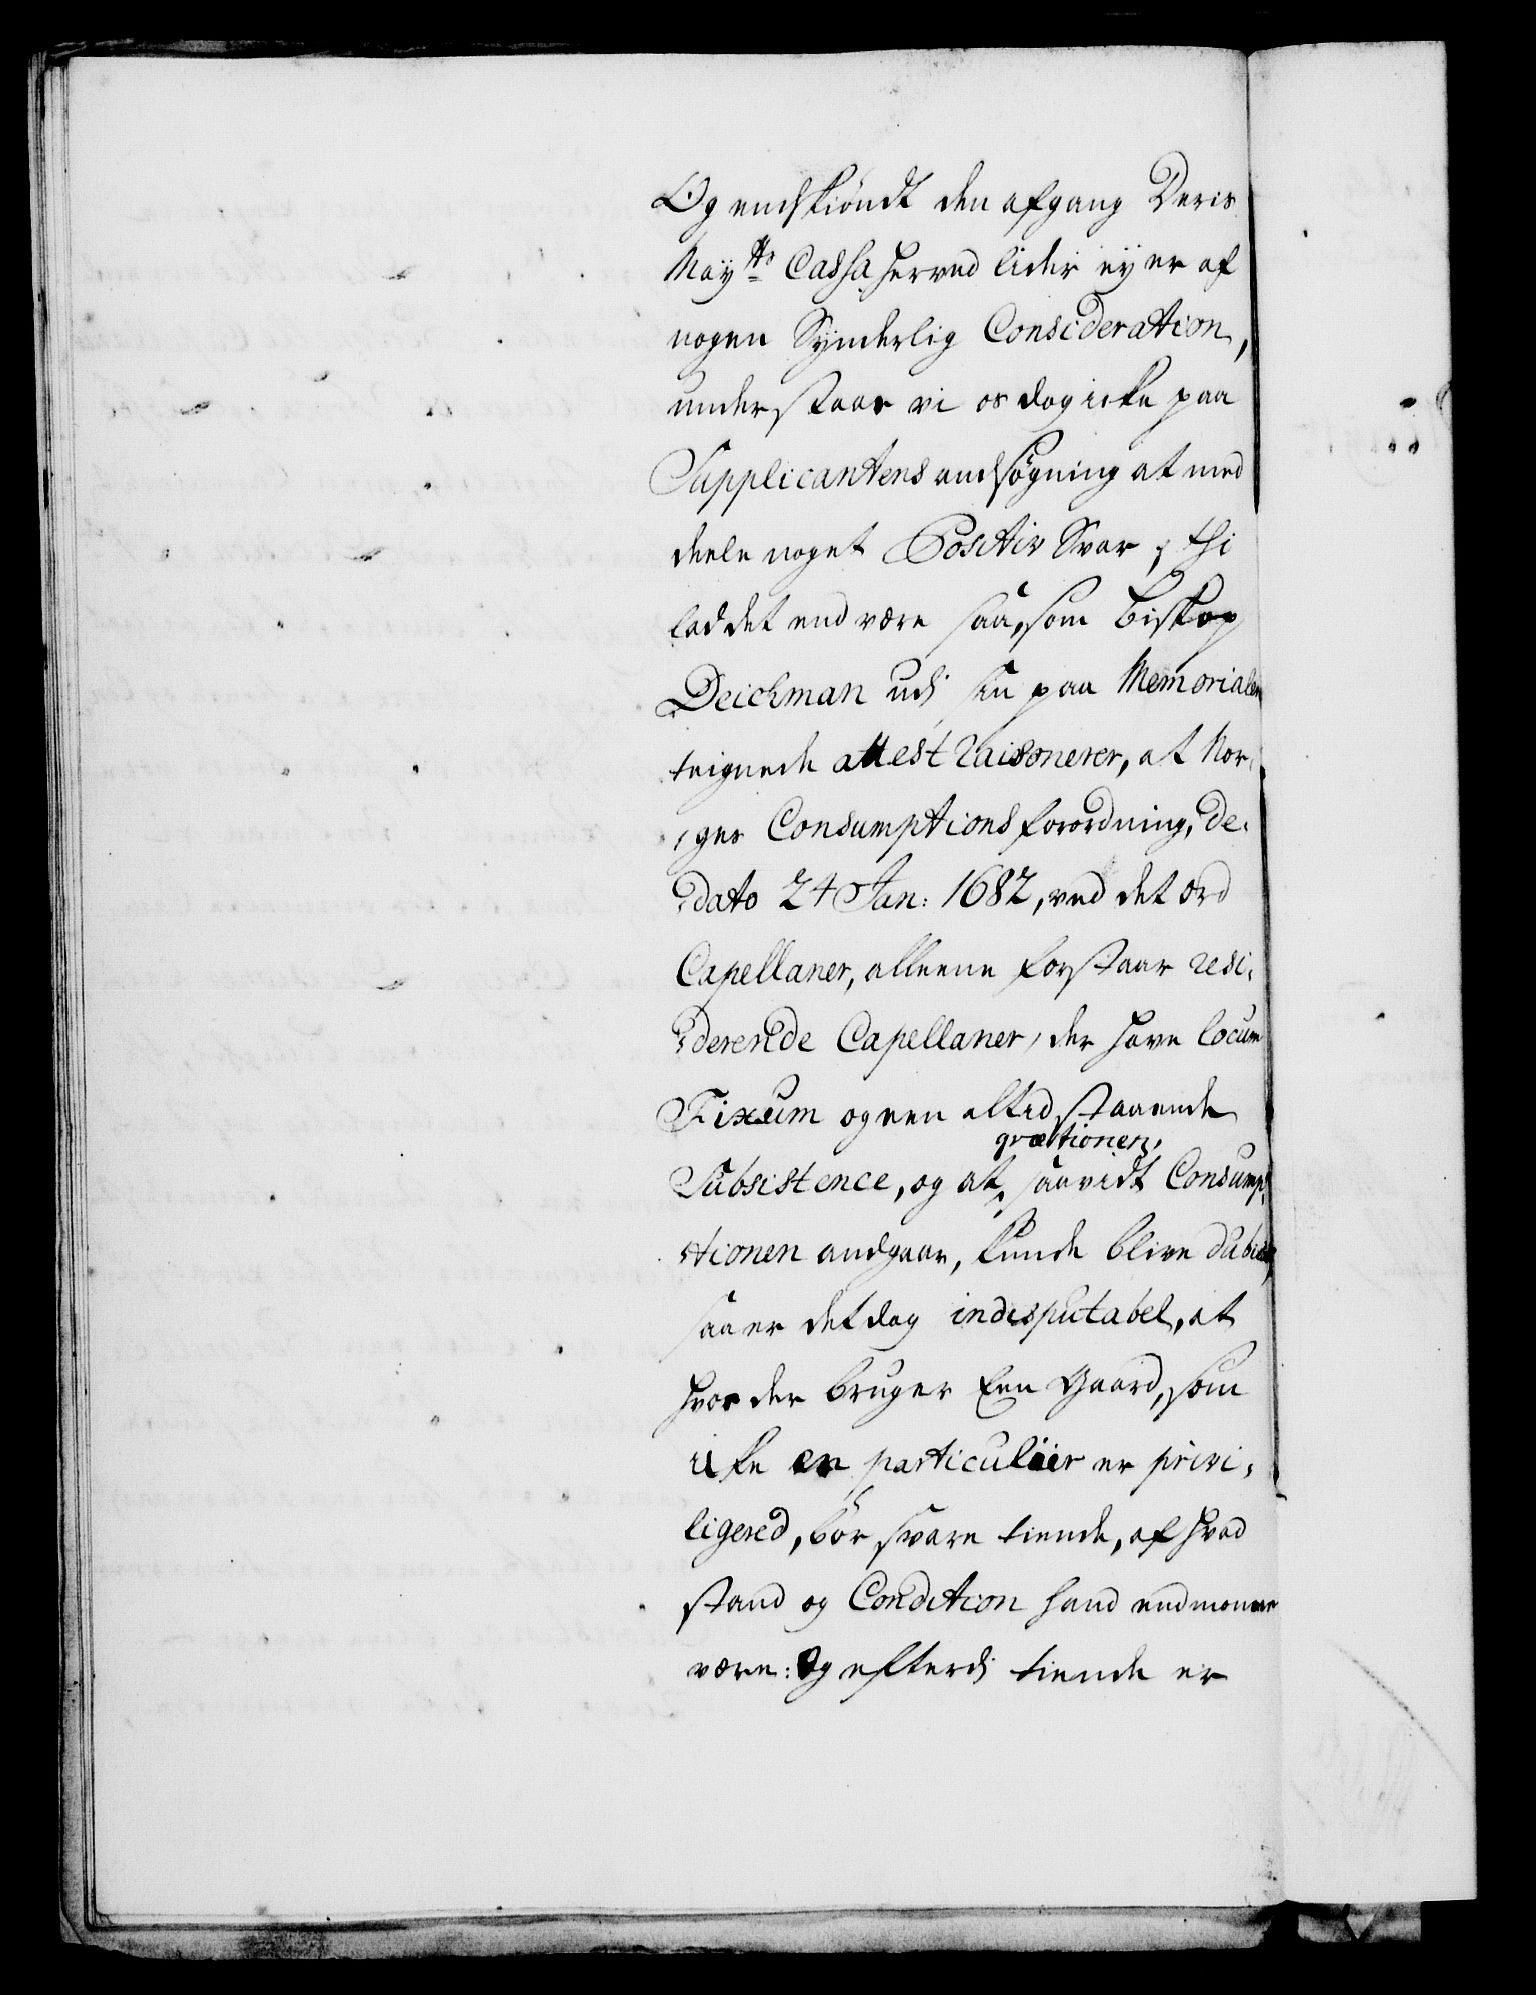 Og endskiøndt den afgang Deris
Mayts Cassa herved lider ey er af
nogen Synderlig Consideration,
understaar vi os dog icke paa
Supplicantens andsøgning at med
deele noget Positiv Svar, thi
lad det end være saa, som Biskop
Deichman udi sin paa Memorialen
teignede attest raisonerer, at Nor-
ges Consumptions forordning, de-
dato 24 Jan: 1682, ved det ord
Capellaner, alleene forstaar resi-
derende Capellaner, der have locum
Fixum og een altid staaende
qvæstionen,
Subsistence, og at saavidt Consump-
tionen andgaar, kunde blive dubieus,
saa er det dog indisputabel, at
hvor der bruger Een Gaard, som
icke en particulier er privi-
ligered, bør svare tiende, af hvad
stand og Condition hand end monne
være: Og efterdi tiende er